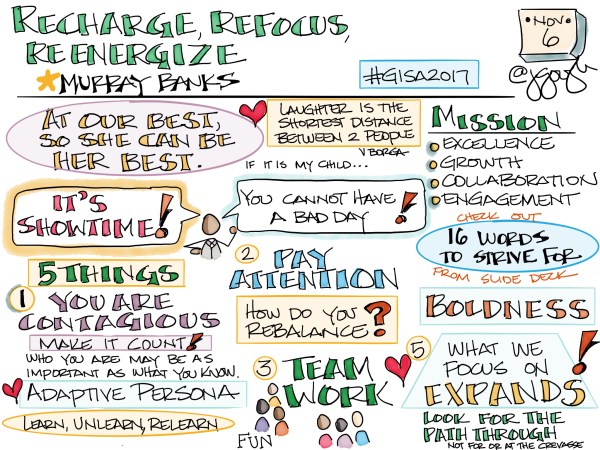 RECHARGE, REFOCUS,
REENERGIZE
MURRAY BANKS
#GISA2017
NOV
6
@jgough
AT OUR BEST,
SO SHE CAN BE
HER BEST.
LAUGHTER IS THE
SHORTEST DISTANCE
BETWEEN 2 PEOPLE
V BORGA
IF IT IS MY CHILD...
MISSION
EXCELLENCE
GROWTH
COLLABORATION
ENGAGEMENT
CHECK OUT
16 WORDS
TO STRIVE FOR
FROM SLIDE DECK
IT'S
SHOWTIME!
YOU CANNOT HAVE
A BAD DAY!
5 THINGS
1 YOU ARE
CONTAGIOUS
MAKE IT COUNT!
WHO YOU ARE MAY BE AS
IMPORTANT AS WHAT YOU KNOW.
ADAPTIVE PERSONA
LEARN, UNLEARN, RELEARN
2 PAY
ATTENTION
HOW DO YOU
REBALANCE?
3 TEAM
WORK
FUN
BOLDNESS
5 WHAT WE
FOCUS ON
EXPANDS!
LOOK FOR THE
PATH THROUGH
NOT FOR OR AT THE CREVASSE